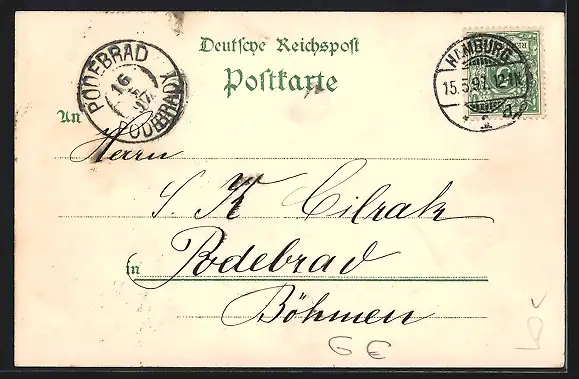 Deutsche Reichspost
Postkarte
PODEBRAD
16
PODĚBRADY
HAMBURG
15.5.97. 12-1N.
An
Herrn
S. K. Cilrak
in Podebrad
Böhmen